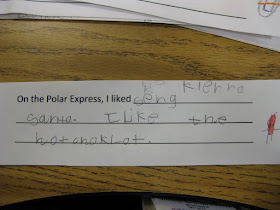 Kierra
On the Polar Express, I liked seng
santa. I Like the
hotchoklat.